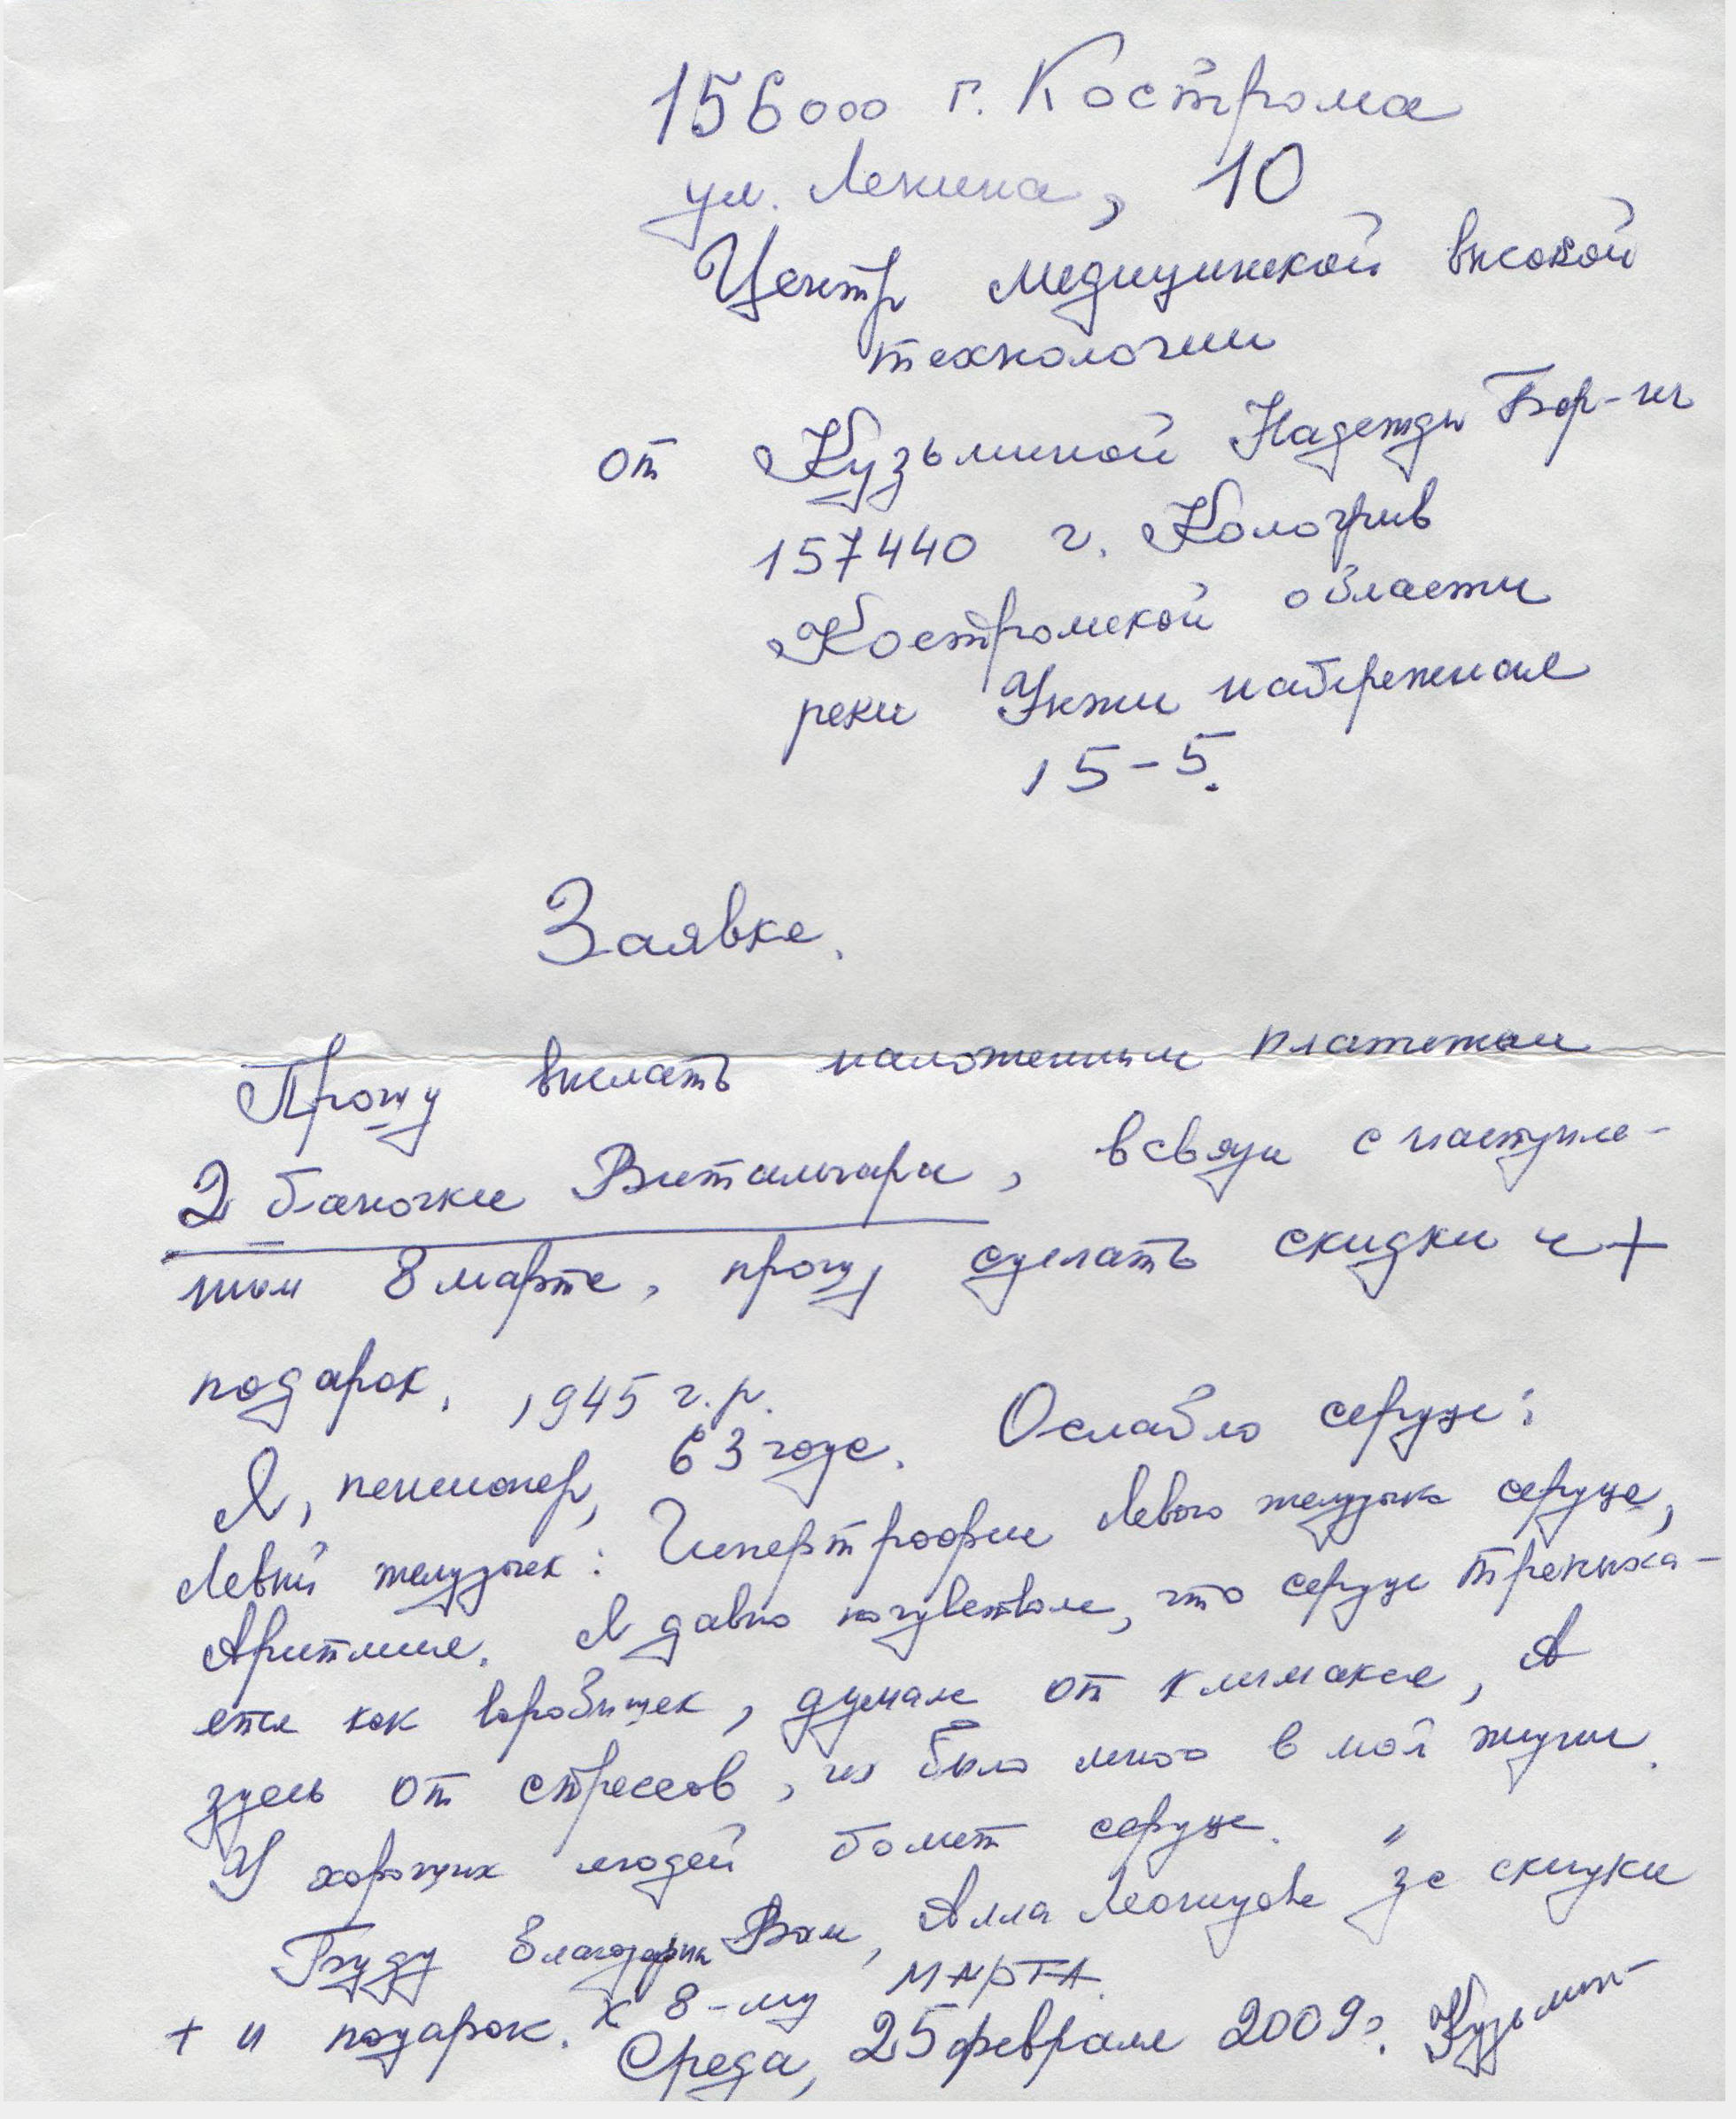 156000 г. Кострома
ул. Ленина, 10
Центр медицинской высокой
технологии
от Кузьминой Надежды Бор-ны
157440 г. Кологрив
Костромской области
реки Унжи набережная
15-5.
Заявка.
Прошу выслать наложенным платежом
2 баночки Витальгара, в связи с наступле-
нием 8 марта, прошу сделать скидки и +
подарок. 1945 г.р.
Я, пенсионер, 63 года. Ослабло сердце:
Левый желудочек: Гипертрофия левого желудочка сердца,
Аритмия. Я давно почувствовала, что сердце трепыха-
ется как воробышек, думала от климакса, А
здесь от стрессов, их было много в моей жизни.
У хороших людей болит сердце.
Буду благодарна Вам, Алла Леонидовна "за скидки
+ и подарок. к 8-му МАРТА.
Среда, 25 февраля 2009г. Кузьмин-